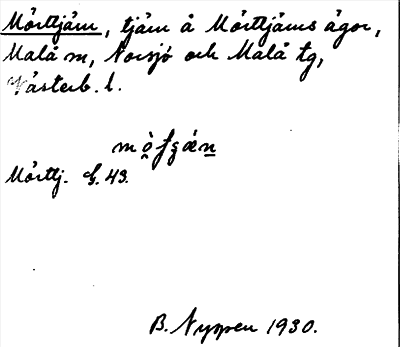 Mörttjärn, tjärn å Mörttjärns ägor,
Malå sn, Norsjö och Malå tg,
Västerb. l.
Mörttj. E. 43.
B. Nyssen 1930.